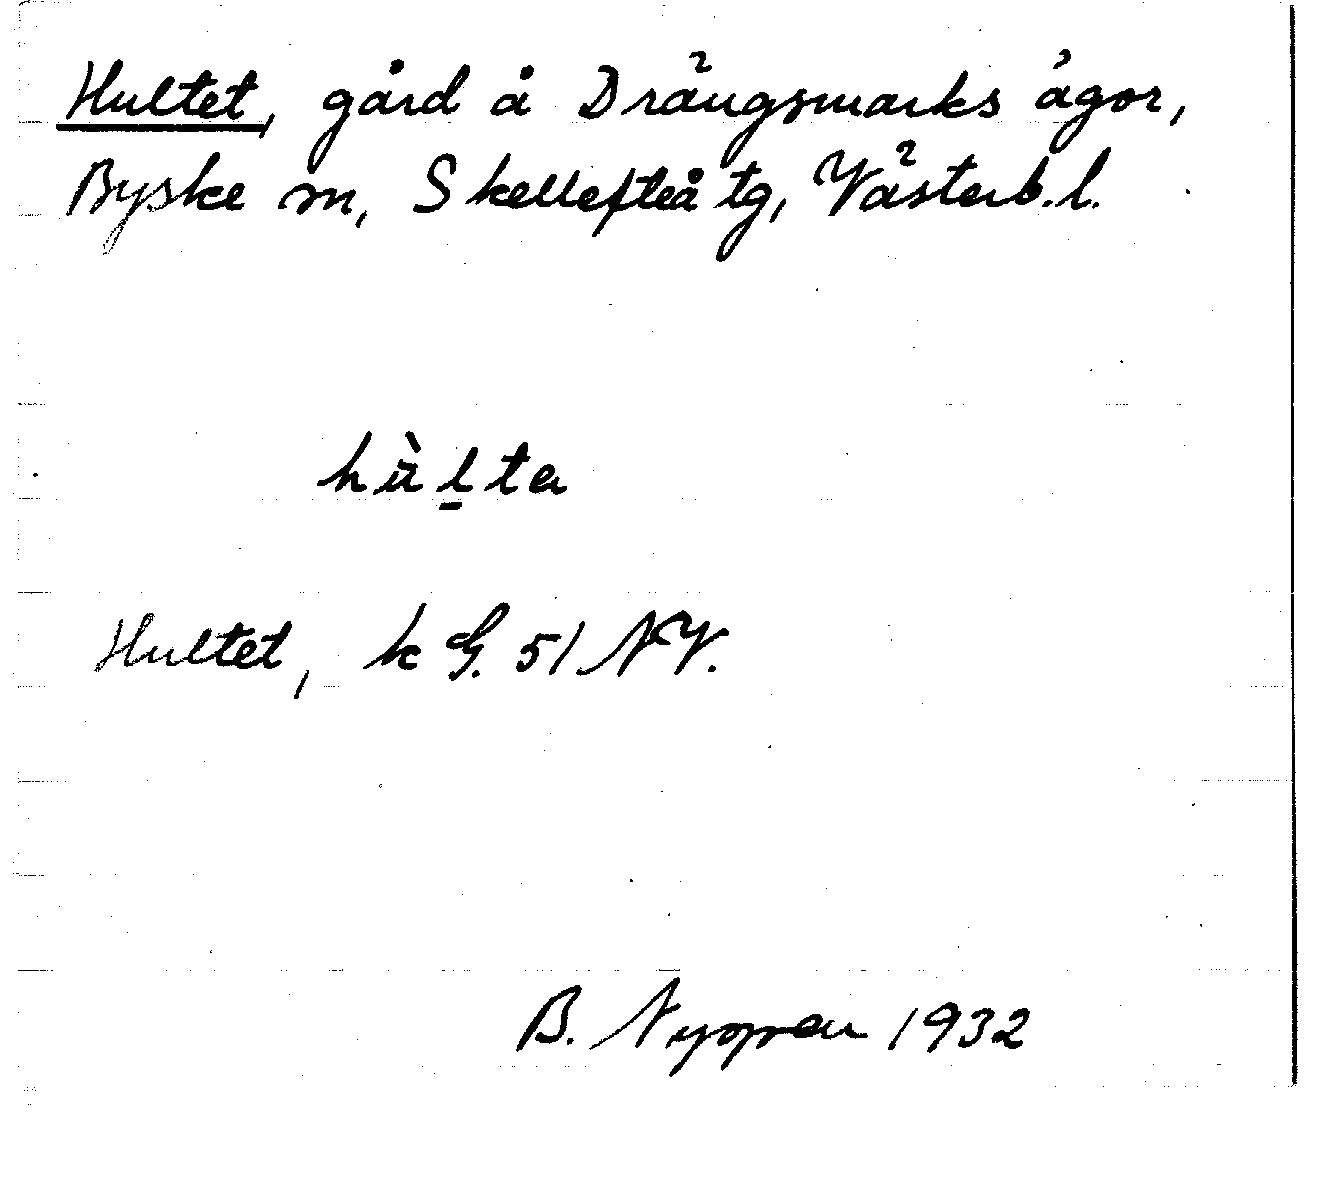 Hultet, gård å Drängsmarks ägor,
Byske sn, Skellefteå tg, Västerb.l.
hùl̠ta
Hultet, k G. 51 NV.
B. Nyman 1932